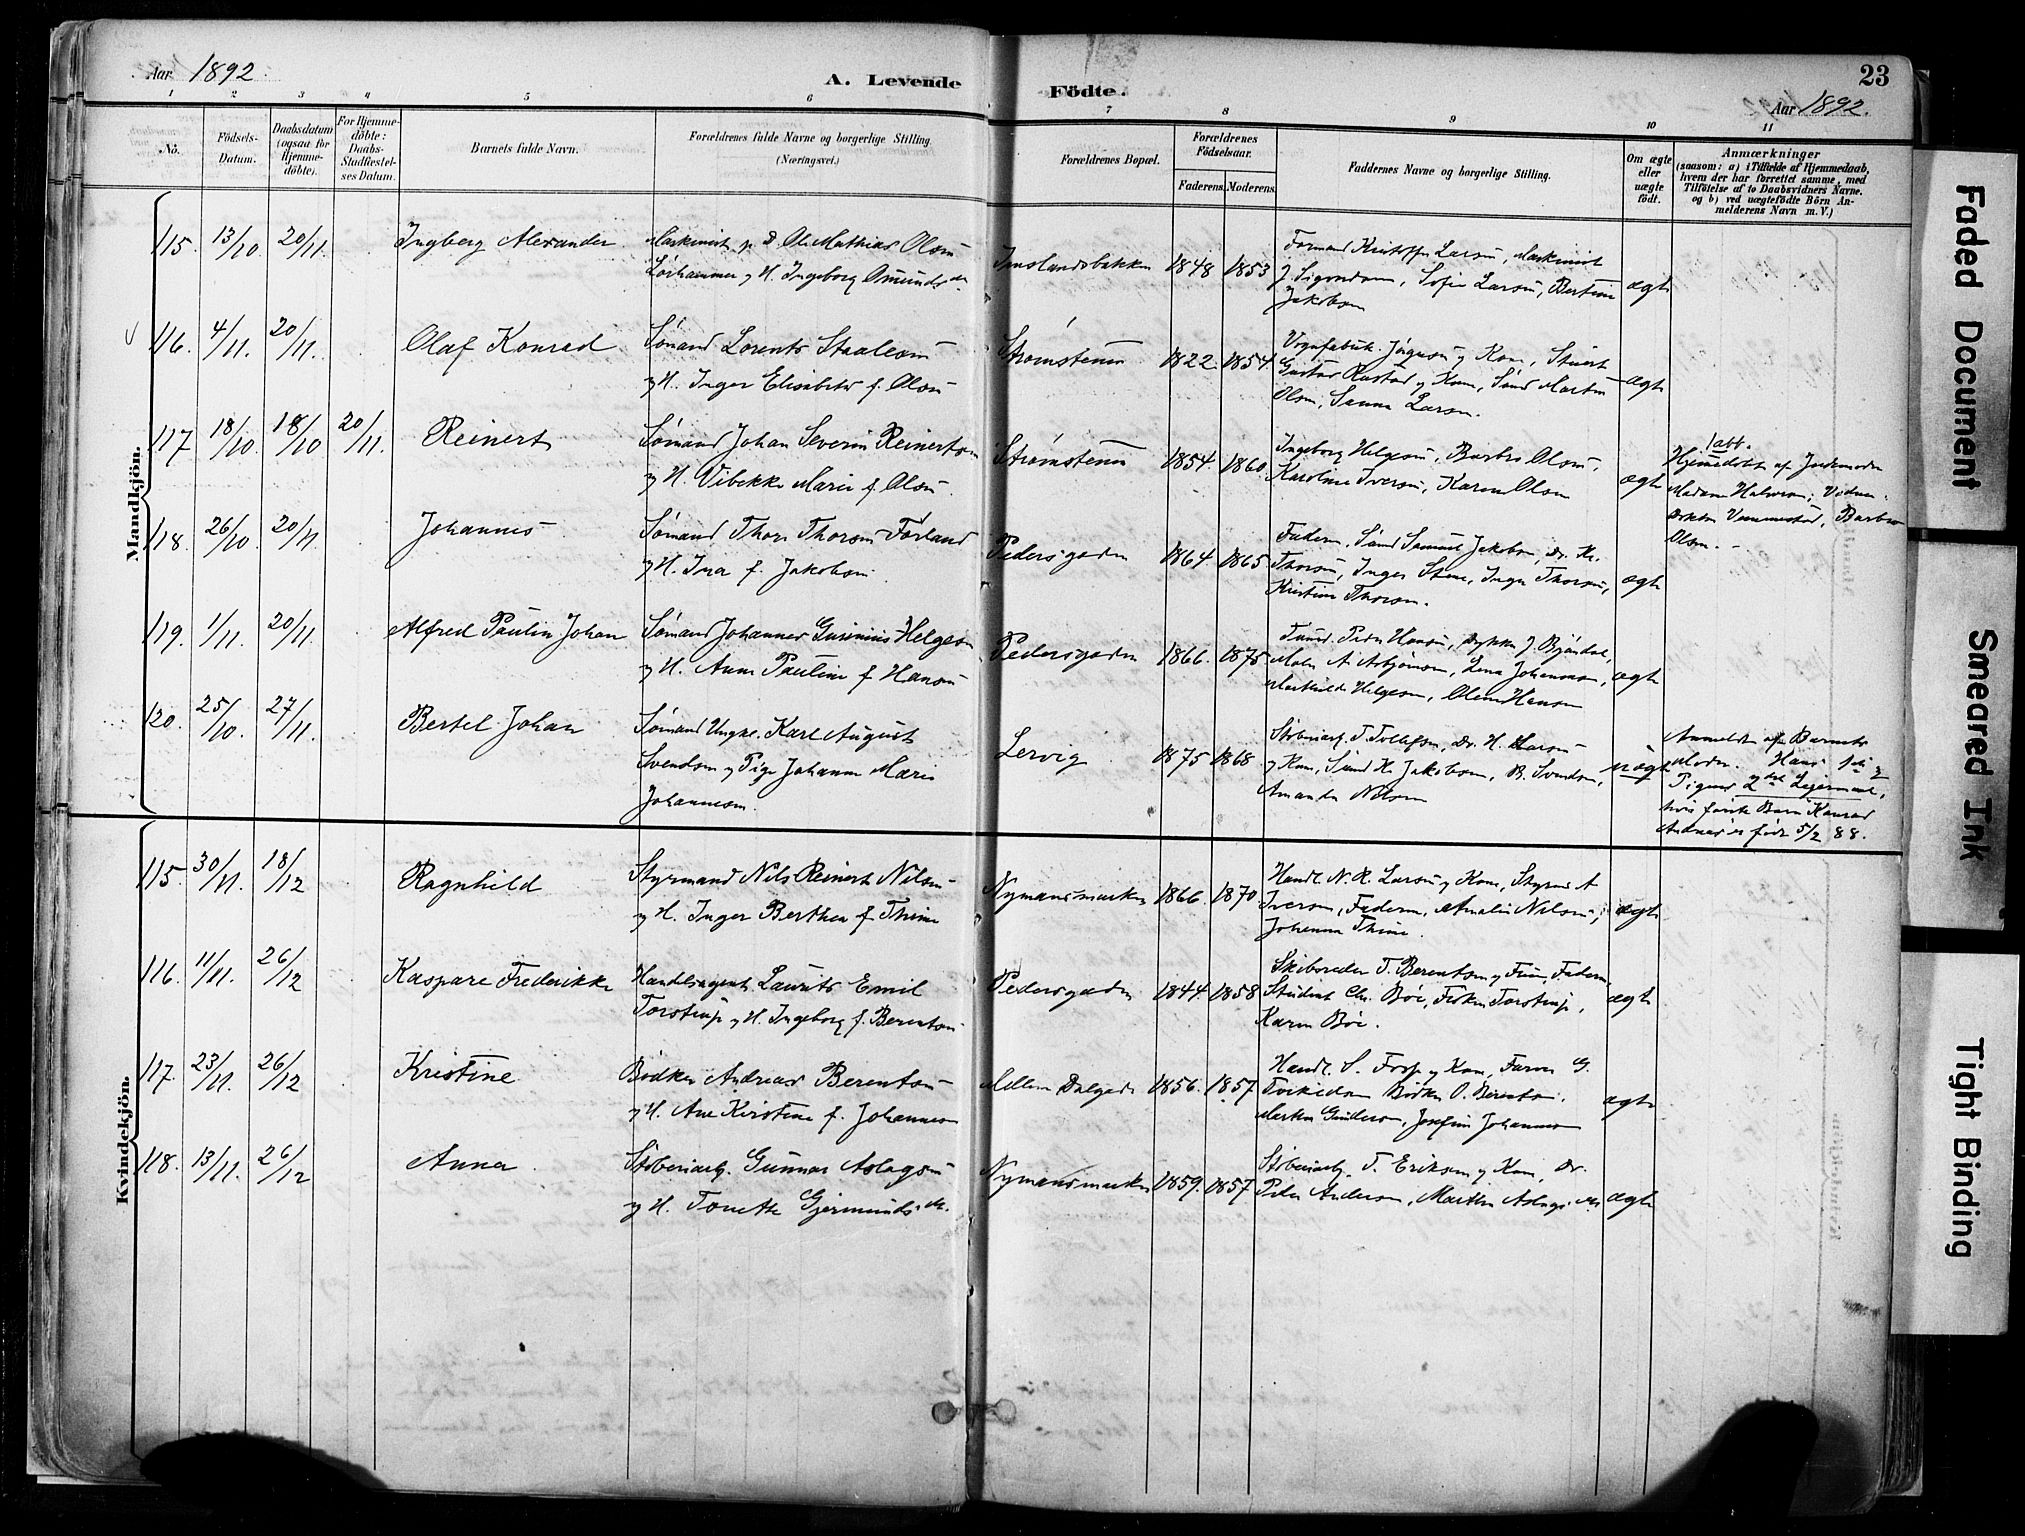 Aar 1892.
A. Levende
Födte.
23
Aar 1892.
1 2 3 4 5 6 7 8 9 10 11
No.
Födsels-
Datum.
Daabsdatum
(ogsaa for
Hjemme-
döbte).
For Hjemme-
döbte:
Daabs-
Stadfæstel-
ses Datum.
Barnets fulde Navn.
Forældrenes fulde Navne og borgerlige Stilling.
(Næringsvei.)
Forældrenes Bopæl.
Forældrenes
Födselsaar.
Faderens. Moderens.
Faddernes Navne og borgerlige Stilling.
Om ægte
eller
uægte
födt.
Anmærkninger
(saasom: a) i Tilfælde af Hjemmedaab,
hvem der har forrettet samme, med
Tilföielse af to Daabsvidners Navne,
og b) ved uægtefödte Börn An-
melderens Navn m. V.)
Mandkjön.
115. 13/10 20/11. Ingberg Alexander
Maskinist p. D. Ol. Mathias Olsen
Lørhammer og H. Ingeborg Omundsdr.
Imslandsbakken 1848 1853
Formand Kristoffer Larsen, Maskinist
J. Sigvordsen, Sofie Larsen, Bertine
Jakobsen
ægte
116. 4/11. 20/11. Olaf Konrad
Sømand Lorents Staalesen
og H. Inger Elisabeth f. Olsen
Strømstenen 1822. 1854.
Vognfabrik. Jørgensen og Kone, Stuert
Gustav Rustad og Kone, Sømd Martin
Olsen, Sanna Larsen.
ægte
117 18/10 18/10 20/11. Reinert
Sømand Johan Severin Reinertsen
og H. Vibekke Marie f. Olsen.
Strømstenen 1854. 1860.
Ingeborg Helgesen, Barbro Olsen,
Karoline Iversen, Karen Olsen
ægte
1 abb.
Hjemmedøbt af Jordemoder
Madame Halvorsen; Vidner:
Doktor Vemmestad, Barbro
Olsen. -
118. 26/10. 20/11 Johannes
Sømand Thore Thorsen Førland
og H. Ina f. Jakobsen.
Pedersgaden 1864 1865
Faderen, Sømd Samuel Jakobsen, Dr. Kr.
Thorsen, Inger Stene, Inger Thorsen,
Kristine Thorsen.
ægte
119. 1/11. 20/11. Alfred Paulin Johan
Sømand Johannes Gusinius Helgesen
og H. Anne Pauline f. Hansen
Pedersgaden 1866. 1875
Tømd. Peder Hansen, Dykker J. Bjøndal,
Maler A. Asbjørnsen, Lena Johannesen,
Mathilde Helgesen, Oleane Hansen
ægte
120. 25/10. 27/11. Bertel Johan
Sømand Ungk. Karl August
Svendsen og Pige Johanne Marie
Johannesen.
Lervig 1875 1868
Støberiarb. T. Tollefsen, Dr. H. Larsen
og Kone, Sømd K. Jakobsen, B. Svendsen,
Amanda Nilsen
uægte
Anmeldt af Barnets
Moder. Hans 1ste og
Pigens 2det Leiermaal,
hvis første Barn Konrad
Andreas er født 5/2 88.
Kvindekjön.
115. 30/11. 18/12 Ragnhild
Styrmand Nils Reinert Nilsen
og H. Inger Berthea f. Thime
Nymansmarken 1866. 1870.
Handl. N. R. Larsen og Kone, Styrmd A
Iversen, Faderen, Amalie Nilsen,
Johanna Thime.
ægte
116. 11/11. 26/12 Kaspare Frederikke
Handelsagent Laurits Emil
Torstrup og H. Ingeborg f. Berentsen
Pedersgaden 1844 1858
Skibsreder T. Berentsen og Frue, Faderen,
Student Chr. Bøe, Frøken Torstrup,
Karen Bøe.
ægte
117. 23/11. 26/12 Kristine
Bødker Andreas Berentsen
og H. Ane Kirstine f. Johannesen
Mellem Dalgade 1856. 1857
Handl. S. Fosp og Kone, Farver G.
Tveikedem Bødker O. Berentsen.
Martha Gundersen, Josefine Johannesen
ægte
118. 13/11. 26/12 Anna
Støberiarb. Gunnar Aslagsen
og H. Tonette Gjermundsdr.
Nymansmarken 1859. 1857
Støberiarb. T. Eriksen og Kone, Dr.
Peder Andersen, Marthe Aslagsdr.
ægte
Faded Document
Smeared Ink
Tight Binding